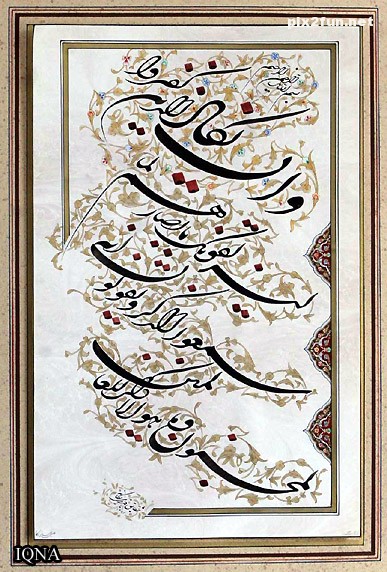 pix2fun.net
بسم الله الرحمن الرحيم
وان يكاد الذين كفروا
ليزلقونك بابصارهم لما
سمعوا الذكر ويقولون انه
لمجنون وما هو الا ذكر للعالمين
IQNA